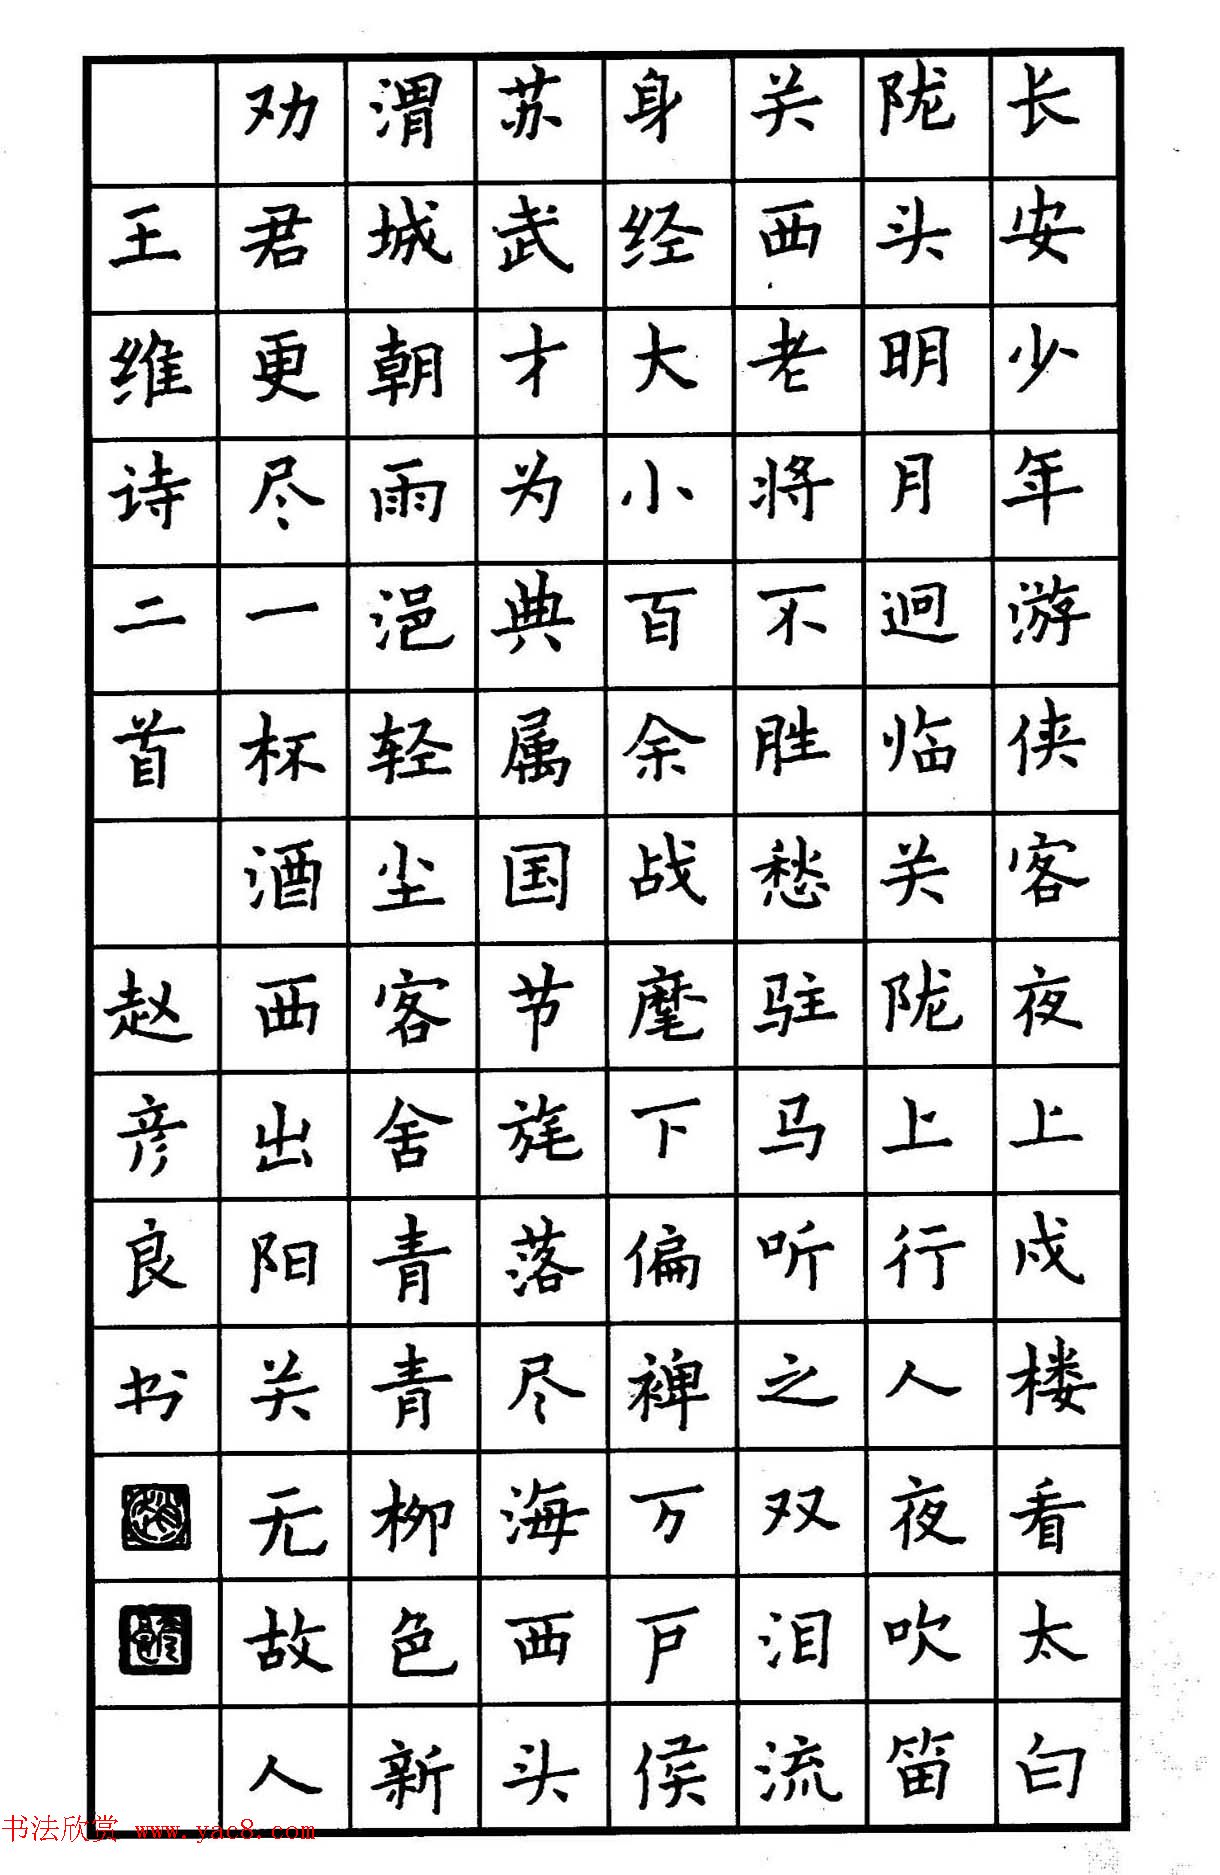 长安少年游侠客夜上戍楼看太白
陇头明月迥临关陇上行人夜吹笛
关西老将不胜愁驻马听之双泪流
身经大小百余战麾下偏裨万户侯
苏武才为典属国节旄落尽海西头
渭城朝雨浥轻尘客舍青青柳色新
劝君更尽一杯酒西出阳关无故人
王维诗二首 赵彦良书
书法欣赏 www.yac8.com